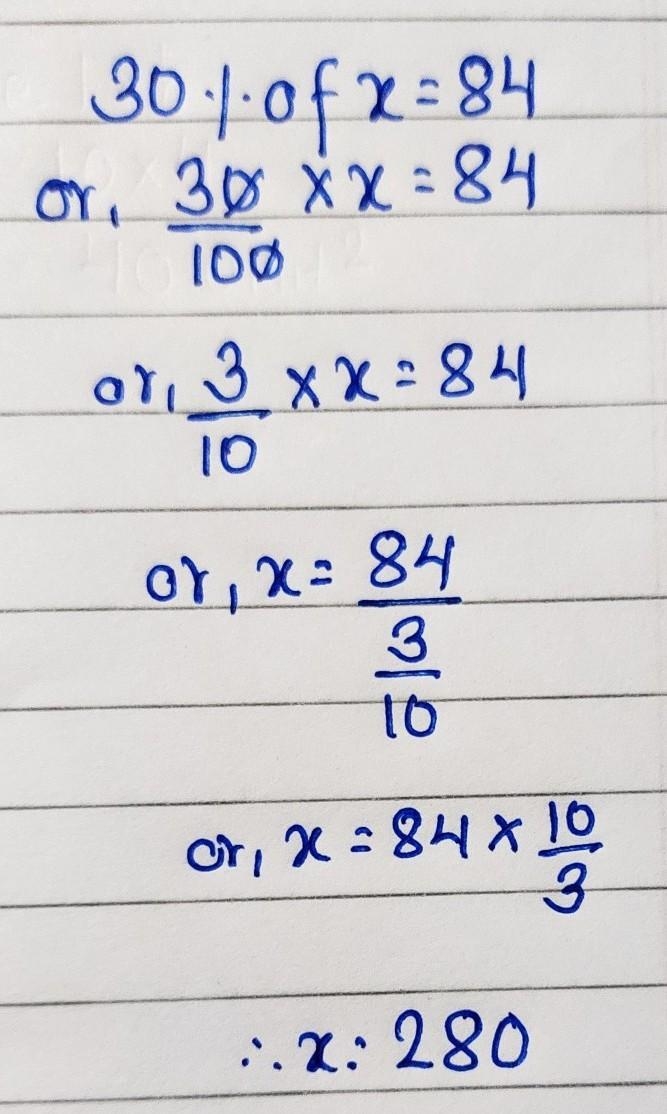 30% of x = 84
or, 30/100 × x = 84
or, 3/10 × x = 84
or, x = 84/(3/10)
or, x = 84 × 10/3
∴ x = 280